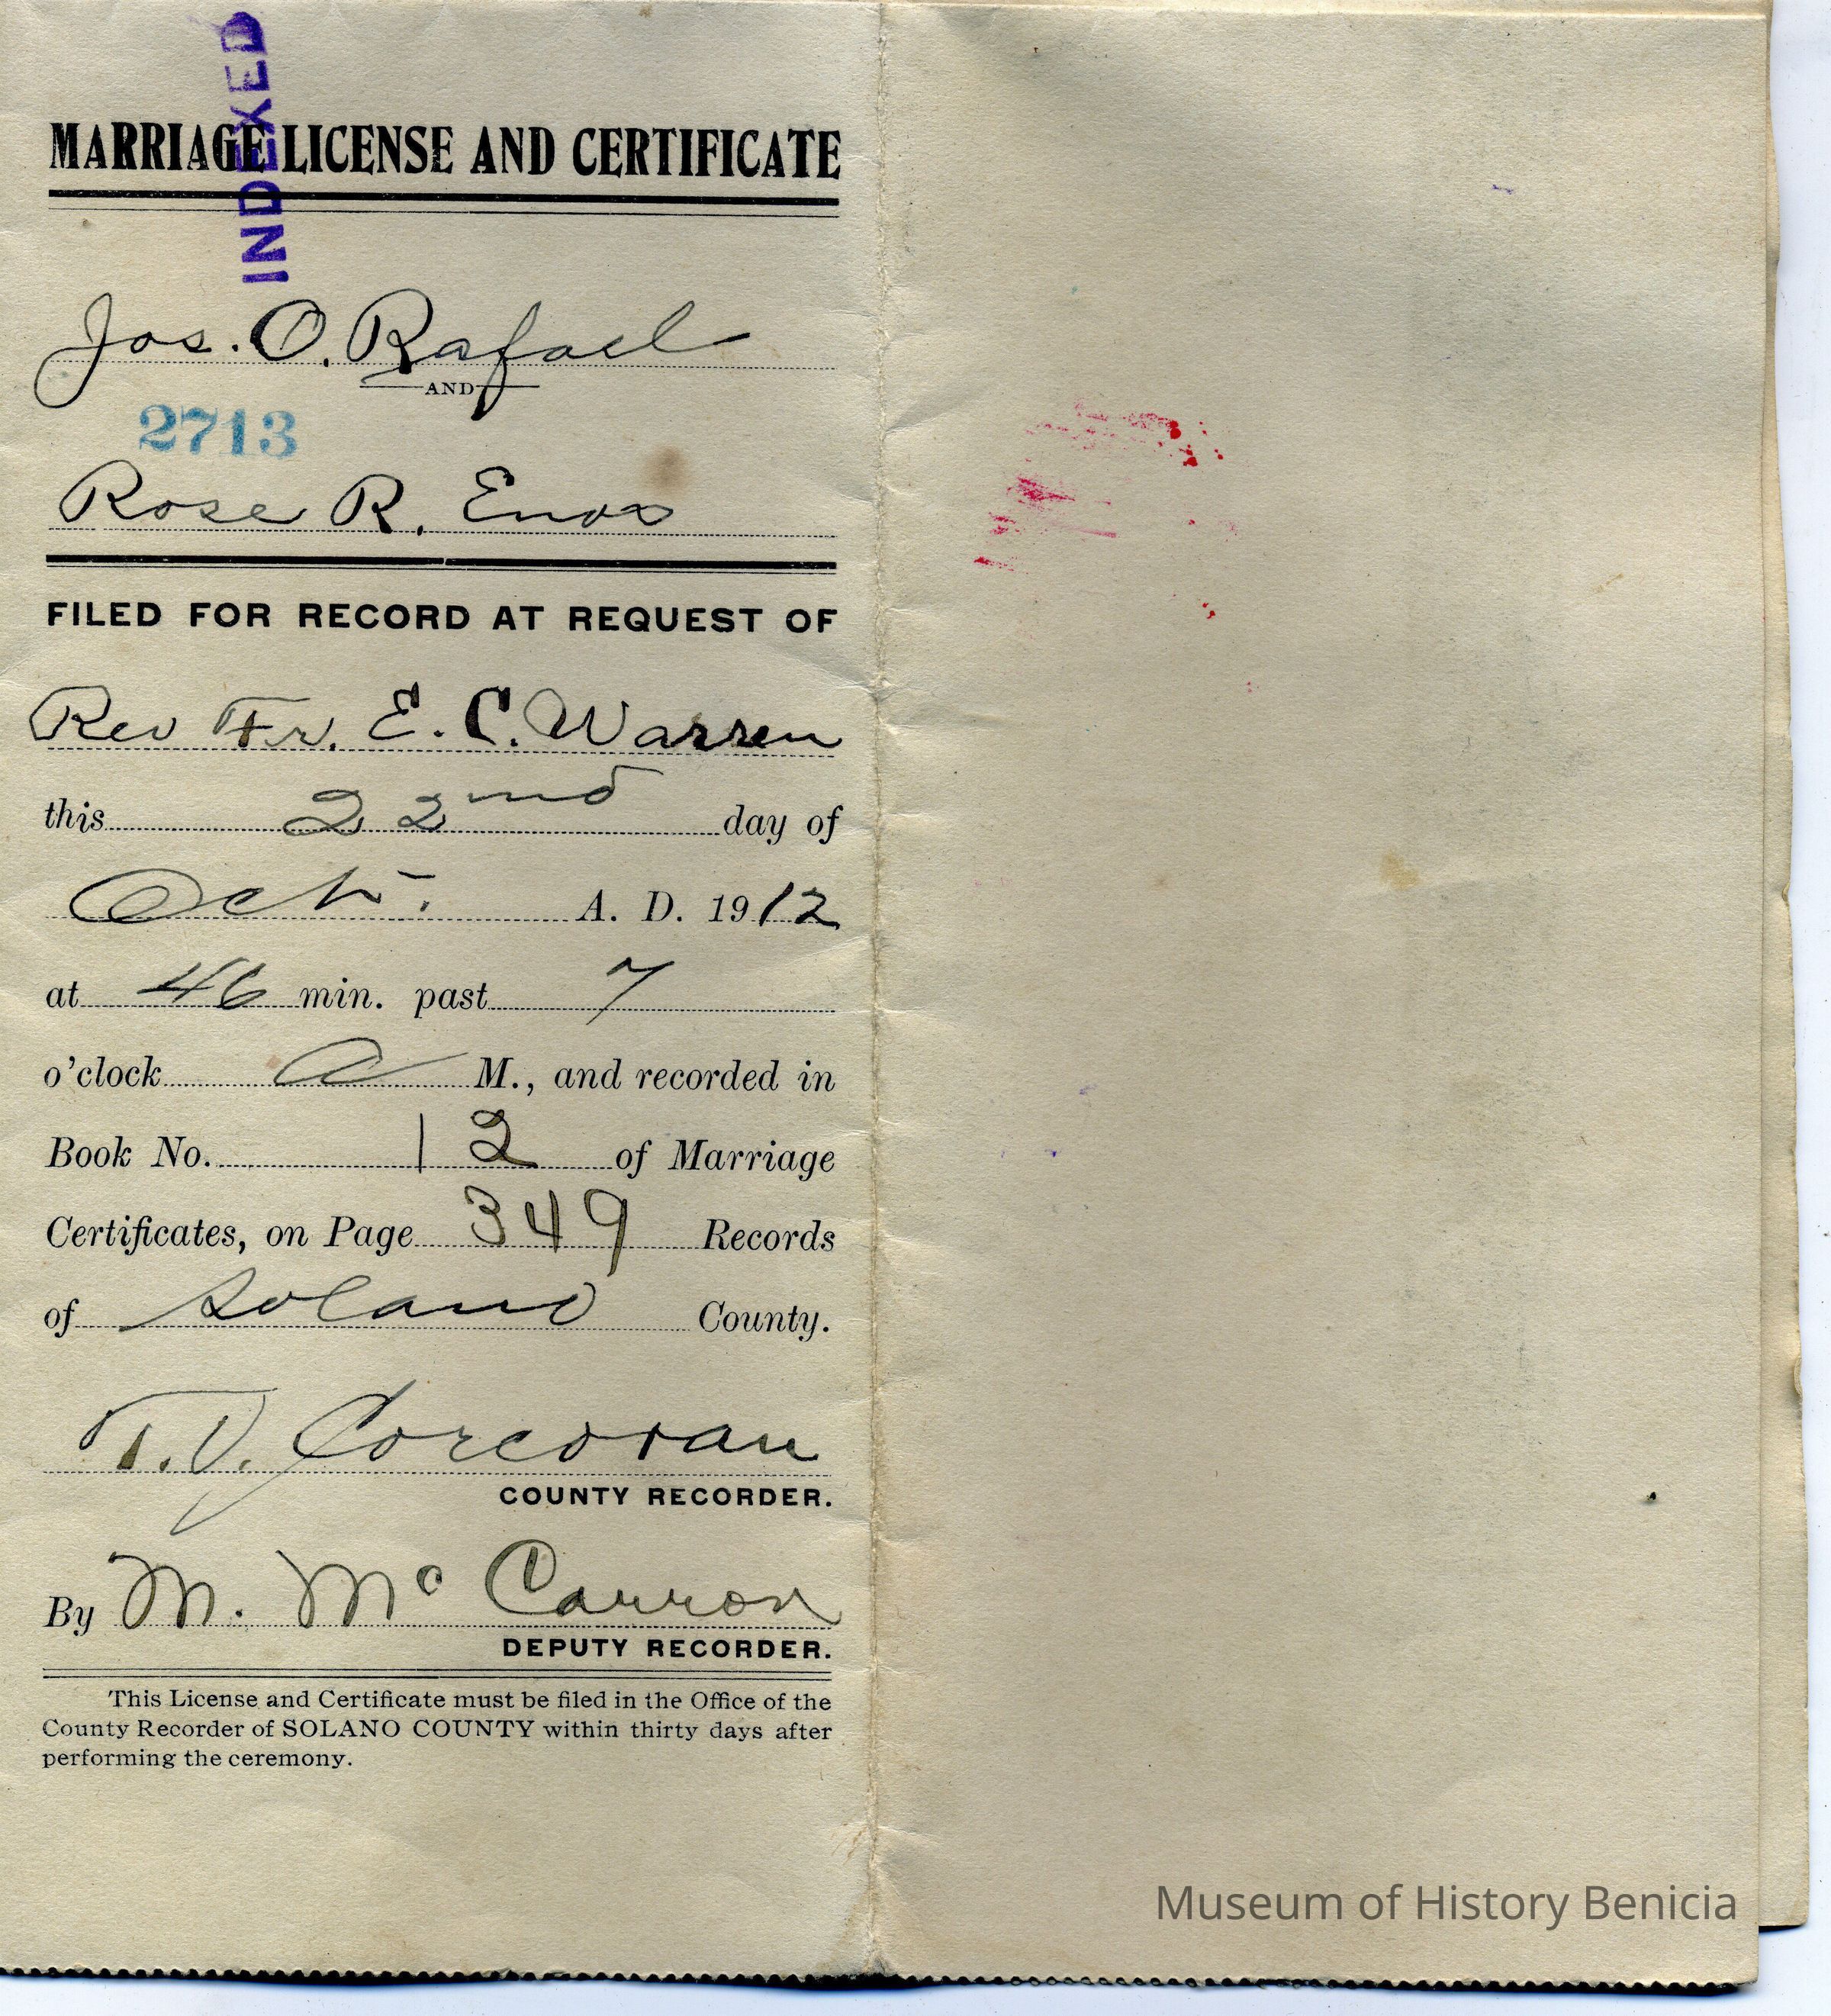 INDEXED
MARRIAGE LICENSE AND CERTIFICATE
Jos. O. Rafael
AND
2713
Rose R. Enos
FILED FOR RECORD AT REQUEST OF
Rev Fr. E. C. Warren
this 22nd day of
Oct. A. D. 1912
at 46 min. past 7
o'clock a M., and recorded in
Book No. 12 of Marriage
Certificates, on Page 349 Records
of Solano County.
T. D. Corcoran
COUNTY RECORDER.
By M. Mc Carron
DEPUTY RECORDER.
This License and Certificate must be filed in the Office of the
County Recorder of SOLANO COUNTY within thirty days after
performing the ceremony.
Museum of History Benicia